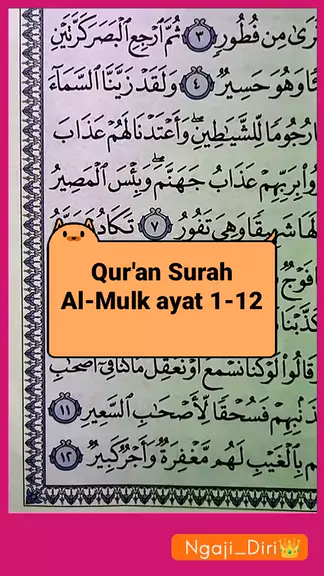 تَرَىٰ مِن فُطُورٍ ٣ ثُمَّ ٱرْجِعِ ٱلْبَصَرَ كَرَّتَيْنِ
وَهُوَ حَسِيرٌ ٤ وَلَقَدْ زَيَّنَّا ٱلسَّمَآءَ
رُجُومًا لِّلشَّيَٰطِينِ وَأَعْتَدْنَا لَهُمْ عَذَابَ
بِرَبِّهِمْ عَذَابُ جَهَنَّمَ وَبِئْسَ ٱلْمَصِيرُ
وَهِىَ تَفُورُ ٧ تَكَادُ
فَوْجٌ
Qur'an Surah
Al-Mulk ayat 1-12
قَالُوا۟ لَوْ كُنَّا نَسْمَعُ أَوْ نَعْقِلُ مَا كُنَّا فِىٓ أَصْحَٰبِ
فَسُحْقًا لِّأَصْحَٰبِ ٱلسَّعِيرِ ١١
بِٱلْغَيْبِ لَهُم مَّغْفِرَةٌ وَأَجْرٌ كَبِيرٌ ١٢
Ngaji_Diri👑